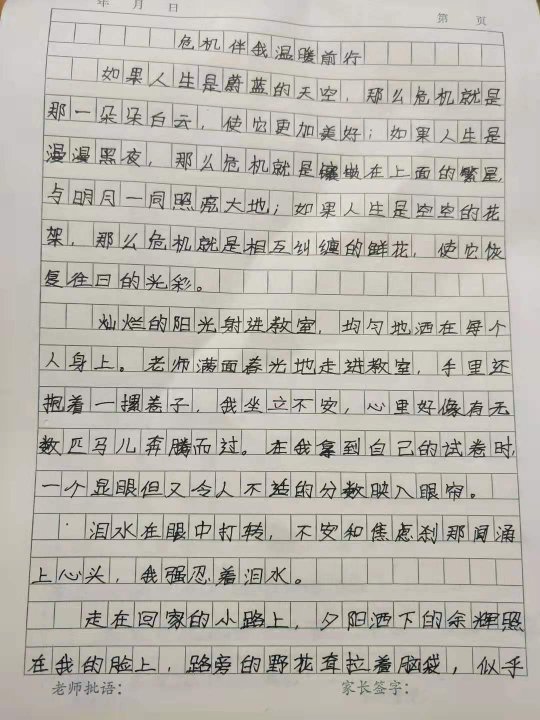 年 月 日 第 页
危机伴我温暖前行
如果人生是蔚蓝的天空，那么危机就是
那一朵朵白云，使它更加美好；如果人生是
漫漫黑夜，那么危机就是镶嵌在上面的繁星，
与明月一同照亮大地；如果人生是空空的花
架，那么危机就是相互纠缠的鲜花，使它恢
复往日的光彩。
灿烂的阳光射进教室，均匀地洒在每个
人身上。老师满面春光地走进教室，手里还
抱着一摞卷子，我坐立不安，心里好像有无
数匹马儿奔腾而过。在我拿到自己的试卷时，
一个显眼但又令人不适的分数映入眼帘。
泪水在眼中打转，不安和焦虑刹那间涌
上心头，我强忍着泪水。
走在回家的小路上，夕阳洒下的余辉照
在我的脸上，路旁的野花耷拉着脑袋，似乎
老师批语： 家长签字：